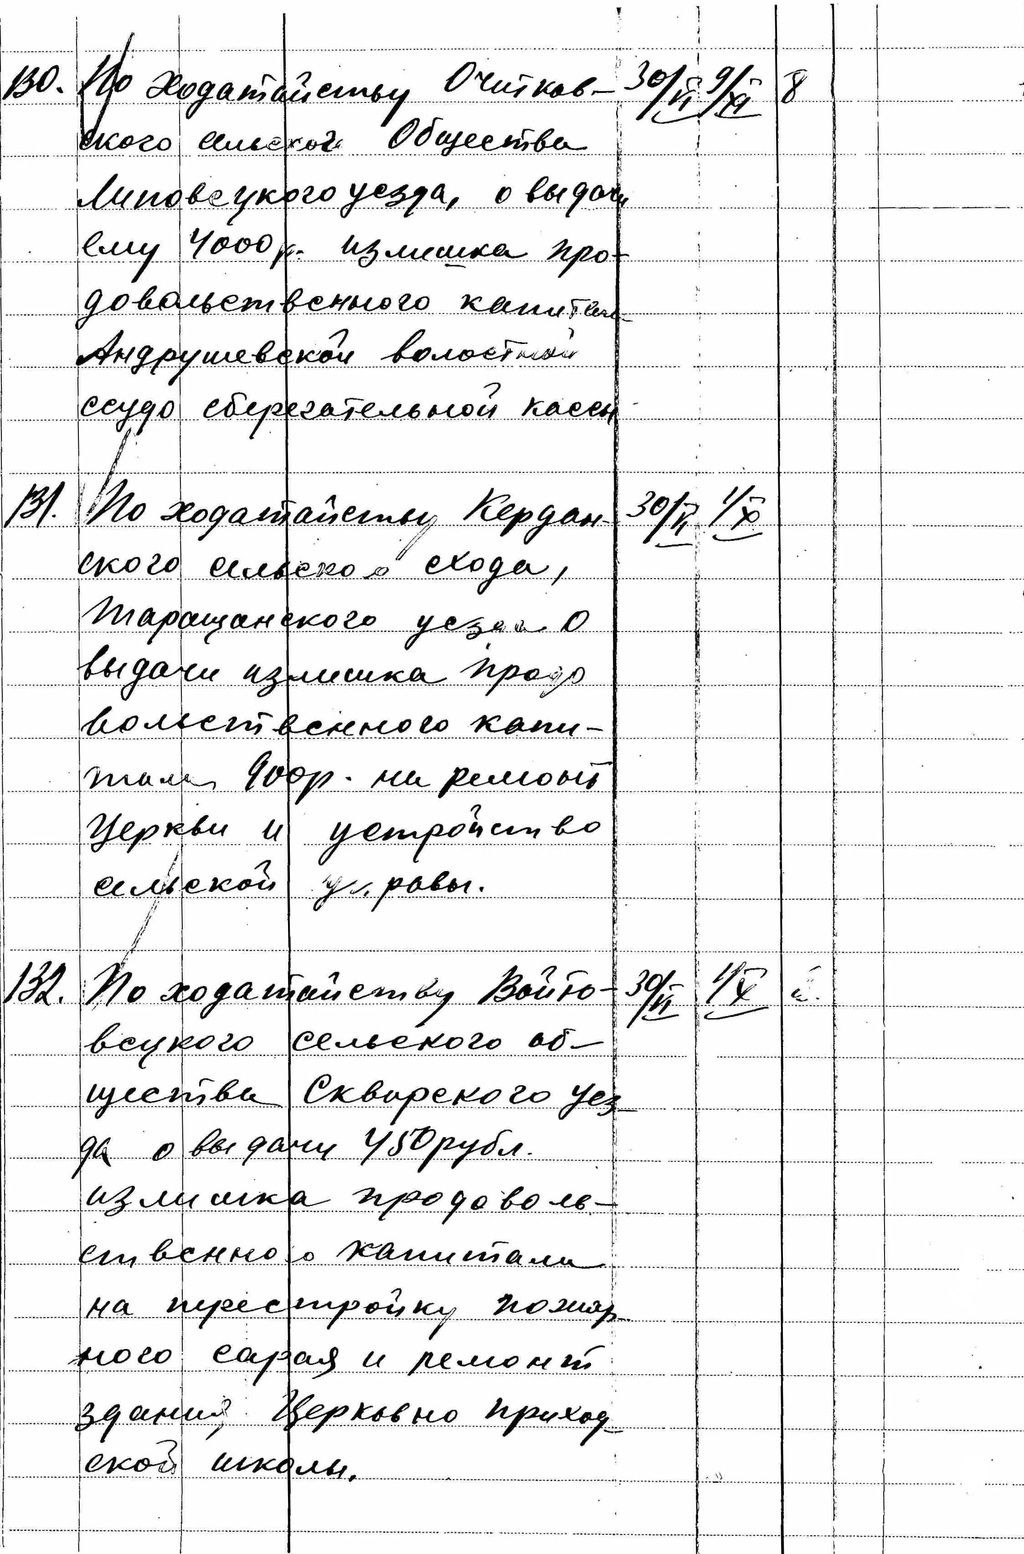 130. По ходатайству Очитков- 30/VI 9/XI 8
ского сельского Общества
Липовецкого уезда, о выдачи
ему 4000 р. излишка про-
довольственного капитала
Андрушевской волостной
ссудо сберегательной кассы
131. По ходатайству Кердан- 30/VI 4/X
ского сельского схода,
Таращанского уезда о
выдачи излишка продо
вольственного капи-
тала 900р. на ремонт
Церкви и устройство
сельской управы.
132. По ходатайству Войто- 30/VI 4/X
вецкого сельского об-
щества Сквирского уез-
да о выдачи 450 рубл.
излишка продоволь-
ственного капитала
на перестройку пожар-
ного сарая и ремонт
здания Церковно приход-
ской школы.